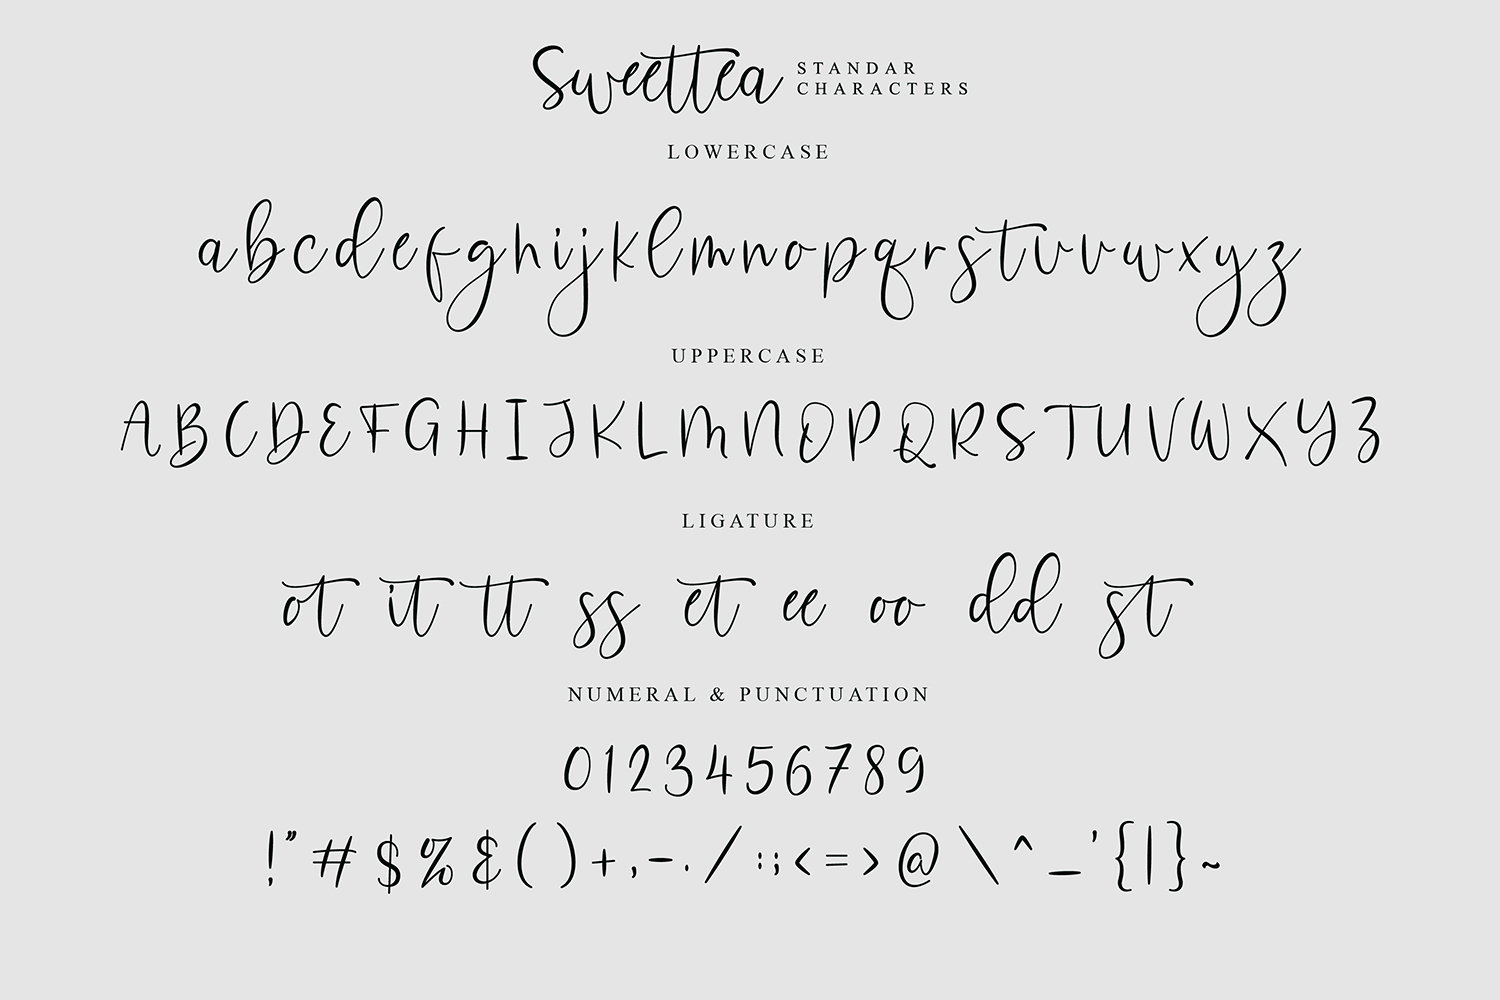 Sweettea STANDAR
CHARACTERS
LOWERCASE
abcdefghijklmnopqrstuvwxyz
UPPERCASE
ABCDEFGHIJKLMNOPQRSTUVWXYZ
LIGATURE
ot it tt ss et ee oo dd st
NUMERAL & PUNCTUATION
0123456789
!"#$%&()+,-./:;<=>@\^_'{|}~